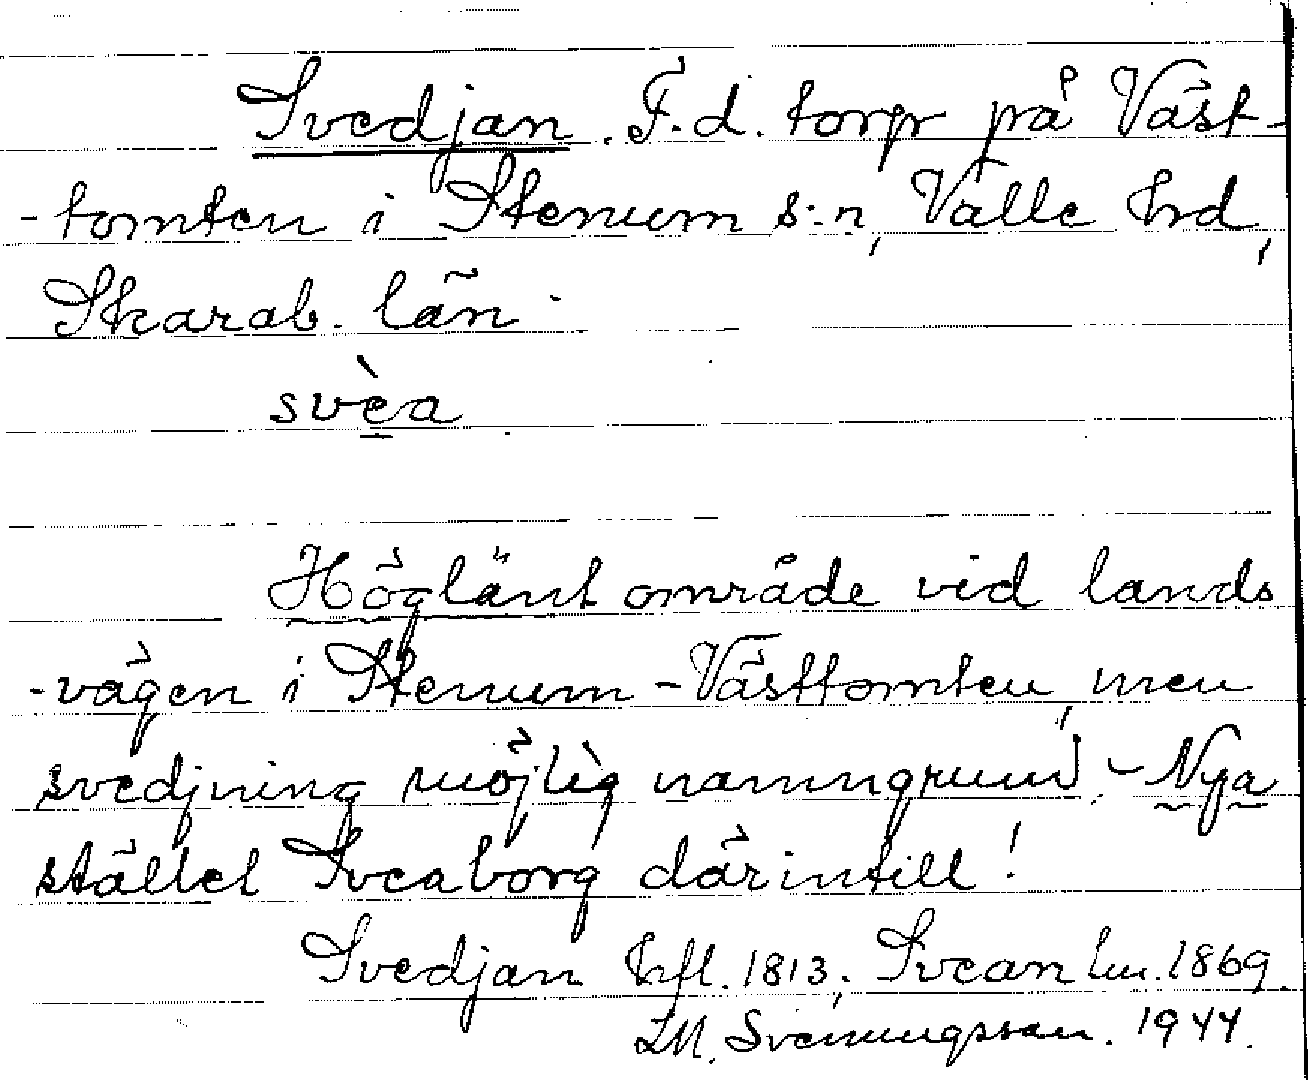 Svedjan. F.d. torp på Väst-
-tomten i Stenum s:n, Valle hrd,
Skarab. län.
svèa
Höglänt område vid lands
-vägen i Stenum-Västtomten, men
svedjning möjlig namngrund. - Nya
stället Sveaborg därintill!
Svedjan hfl. 1813; Svean 1869.
LM. Svenungsson. 1944.